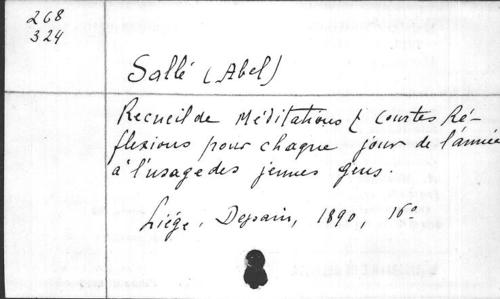 268
324
Sallé (Abel)
Recueil de Méditations & courtes Ré-
flexions pour chaque jour de l'année
à l'usage des jeunes gens.
Liége, Dessain, 1890, 16°